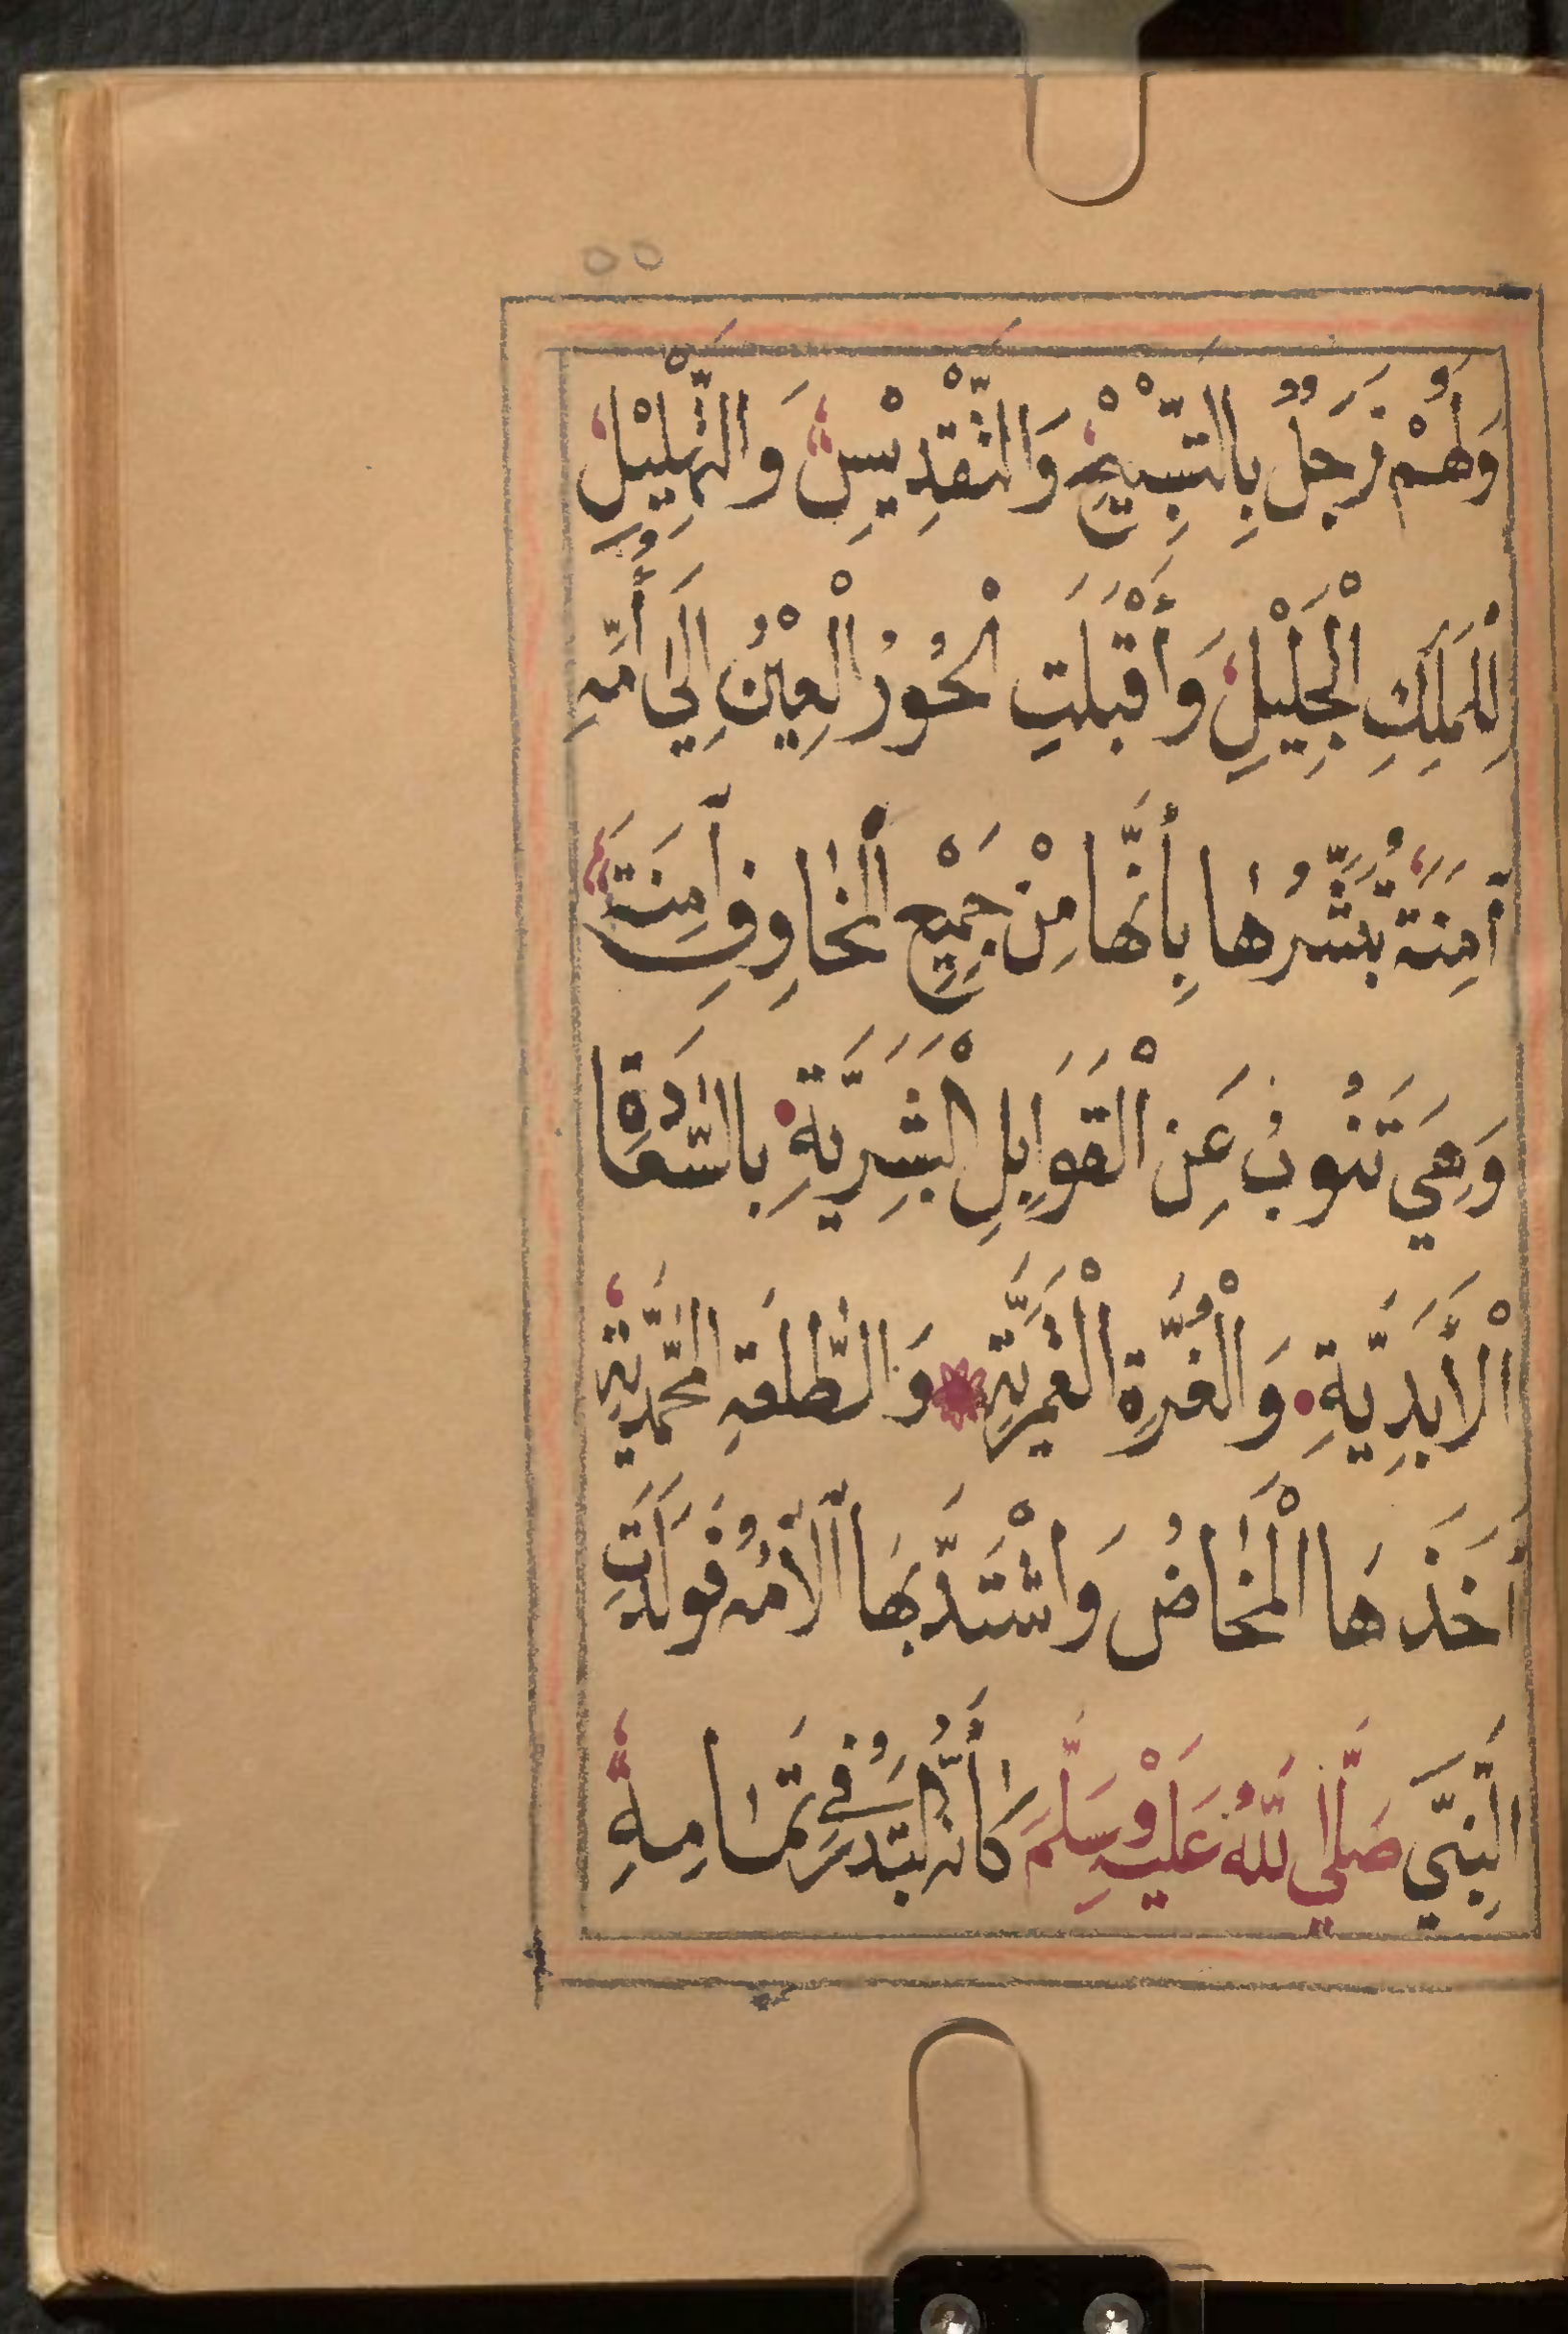 ٥٥
وَلَهُمْ زَجَلٌ بِالتَّسْبِيْحِ وَالتَّقْدِيْسِ وَالتَّهْلِيْلِ
لِلْمَلِكِ الْجَلِيْلِ وَأَقْبَلَتِ الْحُوْرُ الْعِيْنُ اِلَى أُمِّهِ
آمِنَةَ تُبَشِّرُهَا بِأَنَّهَا مِنْ جَمِيْعِ الْمَخَاوِفِ آمِنَةٌ
وَهِيَ تَنُوبُ عَنِ الْقَوَابِلِ الْبَشَرِيَّةِ بِالسَّعَادَةِ
الْأَبَدِيَّةِ وَالْغُرَّةِ الْقَمَرِيَّةِ وَالطَّلْعَةِ الْمُحَمَّدِيَّةِ
أَخَذَهَا الْمَخَاضُ وَاشْتَدَّ بِهَا الْأَمْرُ فَوَلَدَتِ
النَّبِيَّ صَلَّى اللهُ عَلَيْهِ وَسَلَّمَ كَأَنَّهُ الْبَدْرُ فِي تَمَامِهِ